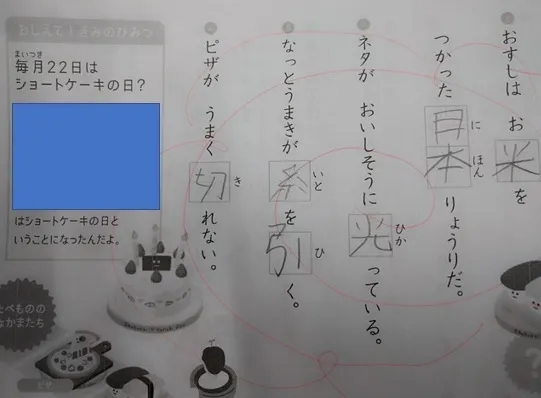 おすしは お米を
つかった日本りょうりだ。
に ほん
ネタが おいしそうに光っている。
ひか
なっとうまきが糸を引く。
いと ひ
ピザが うまく切れない。
き
おしえて!きみのひみつ
まいつき
毎月22日は
ショートケーキの日?
はショートケーキの日と
いうことになったんだよ。
たべものの
なかまたち
ピザ